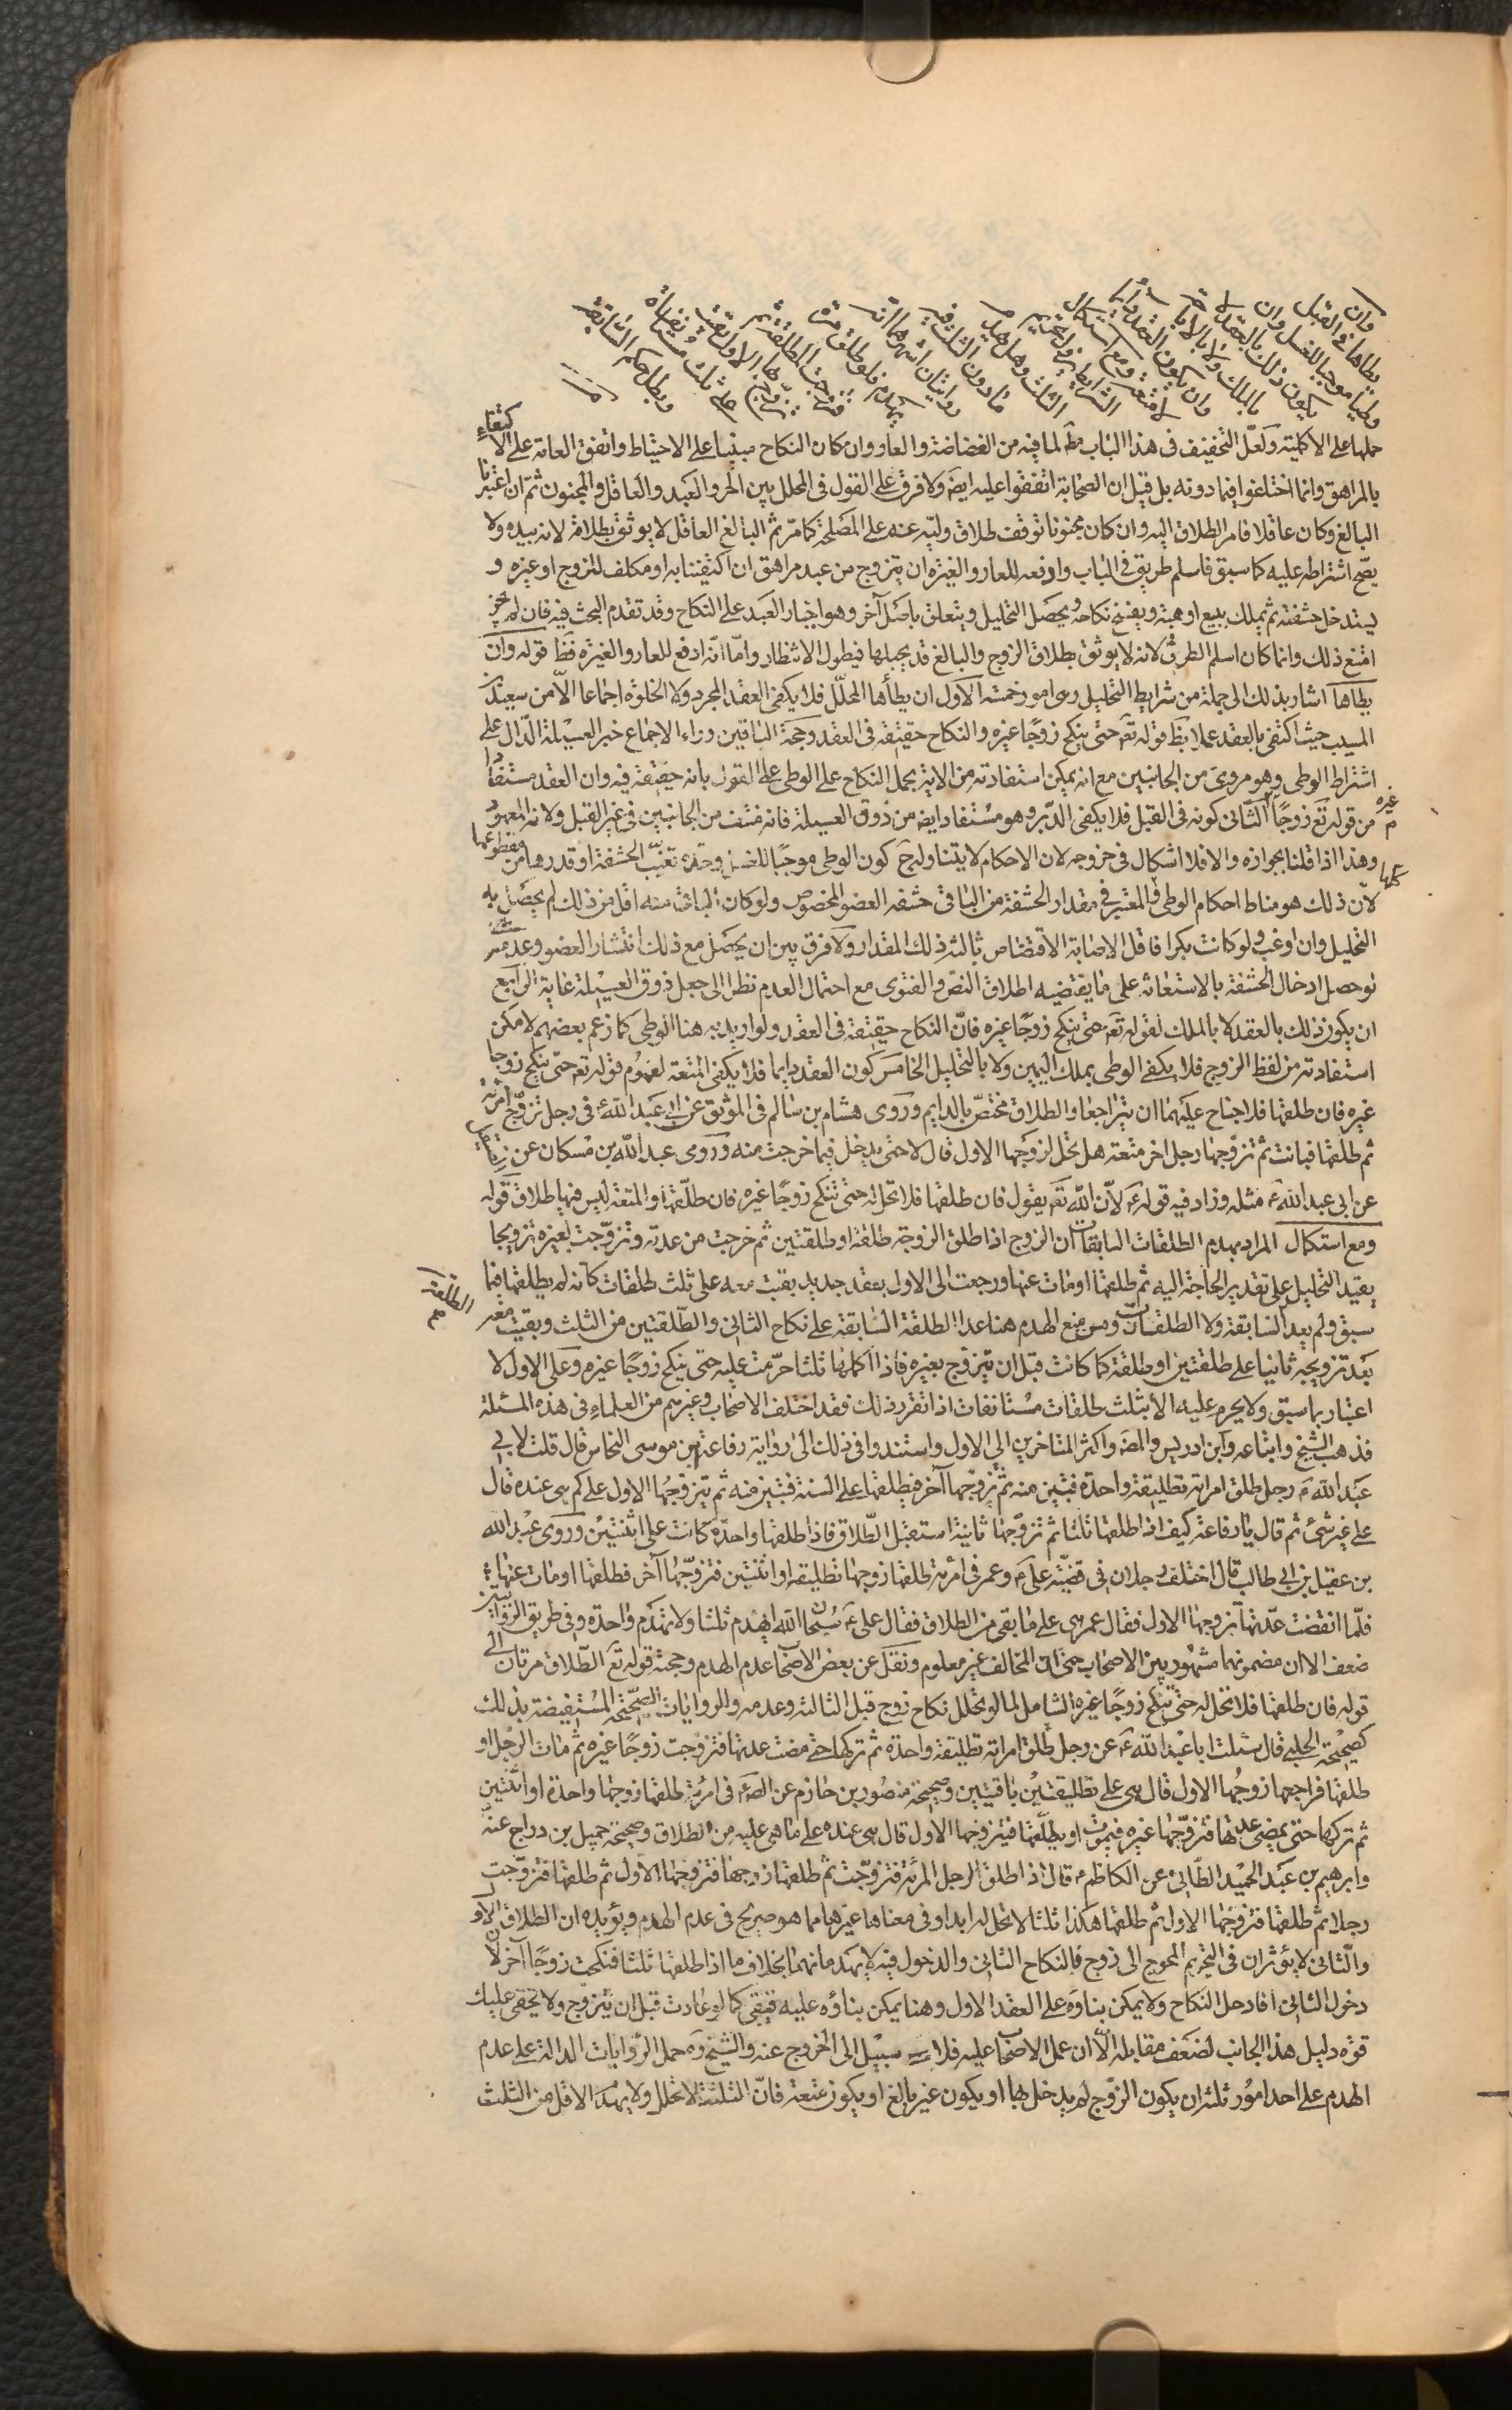 وان
يطأها في القبل
وطيا موجبا للغسل وان
يكون ذلك بالعقد لا
بالملك ولا بالاباحة
وان يكون العقد دائما
لا متعة ومع استكمال
الشرايط يزول تحريم
الثلث وهل يهدم
ما دون الثلث فيه
روايتان اشهرهما انه
يهدم فلو طلق مرة
وتزوجت المطلقة ثم
تزوج بها الاول بقيت
على ثلث مستأنفات
وبطل حكم السابقة
حملها على الاكلية ولعلّ التخفيف في هذا الباب مط لما فيه من الغضاضة والعار وان كان النكاح مبنيا على الاحتياط واتفق العامة على الاكتفاء
بالمراهق وانما اختلفوا فيما دونه بل قيل ان الصحابة اتفقوا عليه ايضا ولا فرق على القول في المحلل بين الحر والعبد والعاقل والمجنون ثم ان اعتبرنا
البالغ وكان عاقلا فامر الطلاق اليه وان كان مجنونا توقف طلاق وليّه عنه على المصلحة كما مرّ ثم البالغ العاقل لا يوثق بطلاقه لانه بيده ولا
يصّح اشتراطه عليه كما سبق فاسلم طريق في الباب وادفعه للعار والغيرة ان يتزوج من عبد مراهق ان اكتفينا به او مكلف للزوج او غيره و
يستدخل حشفته ثم يملك ببيع او هبة ويفسخ نكاحه ويحصل التحليل ويتعلق باصل آخر وهو اجبار العبد على النكاح وقد تقدم البحث فيه فان لم نجز
امتنع ذلك وانما كان اسلم الطرق لانه لا يوثق بطلاق الزوج والبالغ قد يحبلها فيطول الانتظار وامّا انّه ادفع للعار والغيرة فظ قوله وان
يطاها اشار بذلك الى جملة من شرايط التحليل وهى امور خمسة الاول ان يطأها المحلّل فلا يكفى العقد المجرد ولا الخلوة اجماعا الاّ من سعيد بن
المسيب حيث اكتفى بالعقد عملا بظ قوله تع حتى ينكح زوجًا غيره والنكاح حقيقة فى العقد وحجة الباقين وراء الاجماع خبر العسيلة الدّال على
اشتراط الوطى وهو مروى من الجانبين مع انه يمكن استفادته من الاية بحمل النكاح على الوطى على القول بانه حقيقة فيه وان العقد مستفادا
من قوله تع زوجًا غيره الثّانى كونه فى القبل فلا يكفى الدّبر وهو مستفاد ايضا من ذوق العسيلة فانه منتف من الجانبين فى غير القبل ولانه المعهود
وهذا اذا قلنا بجوازه والا فلا اشكال فى خروجه لان الاحكام لا يتناوله ج كون الوطى موجبًا للغسل وحدّه تغيّب الحشفة او قدرها من مقطوعها
لانّ ذلك هو مناط احكام الوطى كلها والمعتبر فى مقدار الحشفة من الباقى حشفه العضو المخصوص ولو كان الباقى منه اقل من ذلك لم يحصل به
التحليل وان اوعب ولو كانت بكرا فاقل الاصابة الاقتضاض بالة ذلك المقدار ولا فرق بين ان يحصل مع ذلك انتشار العضو وعدمه حتى
لو حصل ادخال الحشفة بالاستعانة على ما يقتضيه اطلاق النصّ والفتوى مع احتمال العدم نظرا الى جعل ذوق العسيلة غاية الرابع
ان يكون ذلك بالعقد لا بالملك لقوله تع حتى ينكح زوجًا غيره فانّ النكاح حقيقة فى العقد ولو اريد به هنا الوطى كما زعم بعضهم لامكن
استفادته من لفظ الزوج فلا يكفى الوطى بملك اليمين ولا بالتحليل الخامس كون العقد دايما فلا يكفى المتعة لمفهوم قوله تع حتى ينكح زوجا
غيره فان طلقها فلا جناح عليهما ان يتراجعا والطلاق مختصّ بالدايم وروى هشام بن سالم فى الموثق عن ابى عبد الله ع فى رجل تزوّج امرئة
ثم طلّقها فبانت ثم تزوّجها رجل اخر متعة هل تحل لزوجها الاول قال لا حتى يدخل فيما خرجت منه وروى عبد الله بن مسكان عن
عن ابى عبد الله ع مثله وزاد فيه قوله ع لانّ الله تع يقول فان طلقها فلا تحل له حتى تنكح زوجًا غيره فان طلّقها والمتعة ليس فيها طلاق قوله
ومع استكمال المراد بهدم الطلقات السابقات ان الزوج اذا طلق الزوجة طلقة او طلقتين ثم خرجت من عدته وتزوّجت بغيره تزويجا
يفيد التحليل على تقدير الحاجة اليه ثم طلقها او مات عنها ورجعت الى الاول بعقد جديد بقيت معه على ثلث طلقات كانه لم يطلقها فيما
سبق ولم يعد السابقة ولا الطلقات ومن منع الهدم هنا عدا الطلقة السابقة على نكاح الثانى والطّلقتين من الثلث وبقيت معه
بعد تزويجه ثانيا على طلقتين او طلقة كما كانت قبل ان تتزوّج بغيره فاذا اكملها ثلثا حرّمت عليه حتى ينكح زوجًا غيره وعلى الاول لا
اعتبار بما سبق ولا يحرم عليه الا بثلث طلقات مستانفات اذا تقرر ذلك فقد اختلف الاصحاب وغيرهم من العلماء فى هذه المسئلة
فذهب الشيخ واتباعه وابن ادريس والمصَ واكثر المتاخرين الى الاول واستندوا فى ذلك الى رواية رفاعة بن موسى النخاس قال قلت لابى
عبد الله ع رجل طلق امراته تطليقة واحدة فتبين منه ثم تزوّجها آخر فيطلقها على السنة فتبين منه ثم يتزوجها الاول على كم هى عنده قال
على غير شئ ثم قال يا رفاعة كيف اذا طلقها ثلثا ثم تزوّجها ثانية استقبل الطّلاق فاذا طلقها واحدة كانت على اثنتين وروى عبد الله
بن عقيل بن ابى طالب قال اختلف رجلان فى قضيّة على ع وعمر فى امرئة طلقها زوجها تطليقه او اثنتين فتزوّجها آخر فطلقها او مات عنها
فلمّا انقضت عدّتها تزوجها الاول فقال عمر هى على ما بقى من الطلاق فقال على ع سبحان الله ايهدم ثلثا ولا يهدم واحدة وفى طريق الروايتين
ضعف الا ان مضمونهما مشهور بين الاصحاب حتى ان المخالف غير معلوم ونقل عن بعض الاصحاب عدم الهدم وحجته قوله تع الطّلاق مرتان الى
قوله فان طلقها فلا تحل له حتى تنكح زوجًا غيره الشامل لما لو تخلل نكاح زوج قبل الثالثة وعدمه والروايات الصّحيحة المستفيضة بذلك
كصحيحة الحلبى قال سئلت ابا عبد الله ع عن رجل طلّق امراته تطليقة واحدة ثم تركها حتى مضت عدتها فتزوجت زوجًا غيره ثم مات الرجل او
طلقها فراجعها زوجها الاول قال هى على تطليقتين باقيتين وصحيحة منصور بن حازم عن الصَ ع فى امرئة طلقها زوجها واحدة او اثنتين
ثم تركها حتى يمضى عدتها فتزوّجها غيره فيموت او يطلّقها فيتزوجها الاول قال هى عنده على ما بقى عليه من الطلاق وصحيحة جميل بن دراج عنه
وابرهيم بن عبد الحميد الطّائى عن الكاظم ع قال اذا اطلق الرجل المرئة فتزوّجت ثم طلقها زوجها فتزوجها الاول ثم طلقها فتزوّجت
رجلا ثم طلقها فتزوجها الاول ثم طلقها هكذا ثلثا لا تحل له ابدا وفى معناها غيرها مما هو صريح فى عدم الهدم ويؤيده ان الطلاق الاول
والثّانى لا يؤثران فى التحريم المحوج الى زوج فالنكاح الثانى والدخول فيه لا يهدمانهما بخلاف ما اذا طلقها ثلثا فنكحت زوجًا آخر لان
دخول الثانى افاد حل النكاح ولا يمكن بناؤه على العقد الاول وهنا يمكن بناؤه عليه فيبقى كما لو عادت قبل ان تتزوج ولا يخفى عليك
قوّه دليل هذا الجانب لضعف مقابله الا ان عمل الاصحاب عليه فلا سبيل الى الخروج عنه والشيخ ره حمل الروايات الدالة على عدم
الهدم على احد امور ثلثة ان يكون الزوج لم يدخل بها او يكون غير بالغ او يكون متعة فانّ الثلثة لا تحلل ولا يهدم الاقل من الثلث